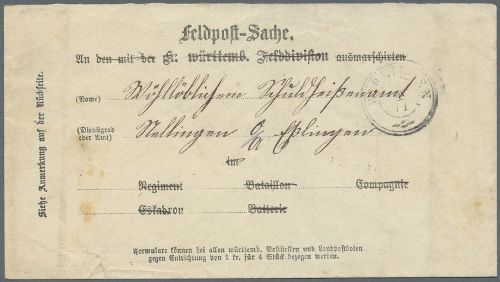 Feldpost-Sache.
An den mit der K. württemb. Felddivision ausmarschirten
(Name) Wohllöblichem Schuldheißenamt
(Dienstgrad oder Amt) Nellingen O/A Eßlingen
im
Regiment Bataillon Compagnie
Eskadron Batterie
Formulare können bei allen württemb. Poststellen und Landpostboten
gegen Entrichtung von 1 kr. für 4 Stück bezogen werden.
Siehe Anmerkung auf der Rückseite.